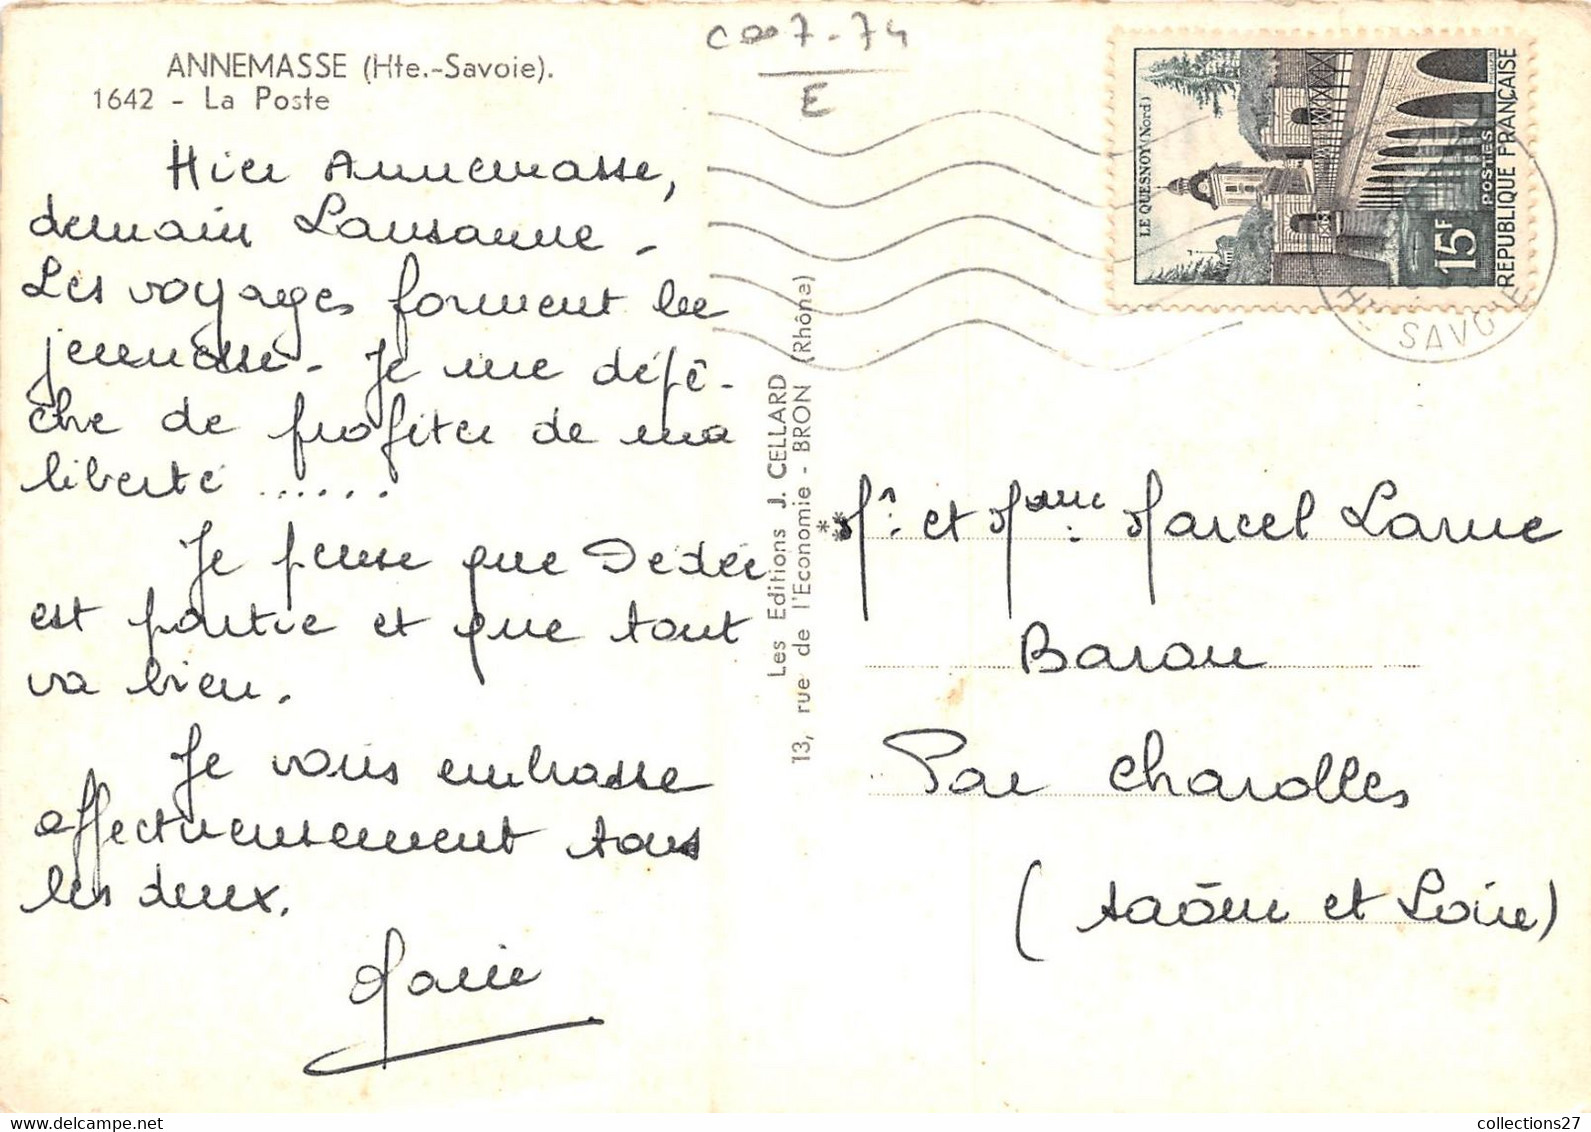 ANNEMASSE (Hte.-Savoie).
1642 - La Poste
Hier Annemasse,
demain Lausanne -
Les voyages forment la
jeunesse - Je me dépê-
che de profiter de ma
liberté ......
Je pense que Dédée
est partie et que tout
va bien.
Je vous embrasse
affectueusement tous
les deux.
Marie
C007-74
E
Les Editions J. CELLARD
13, rue de l'Economie - BRON (Rhône)
LE QUESNOY (Nord)
15F
POSTES
REPUBLIQUE FRANÇAISE
HTE SAVOIE
Mr. et Mme : Marcel Larue
Baron
Par Charolles
(Saône et Loire)
collections27